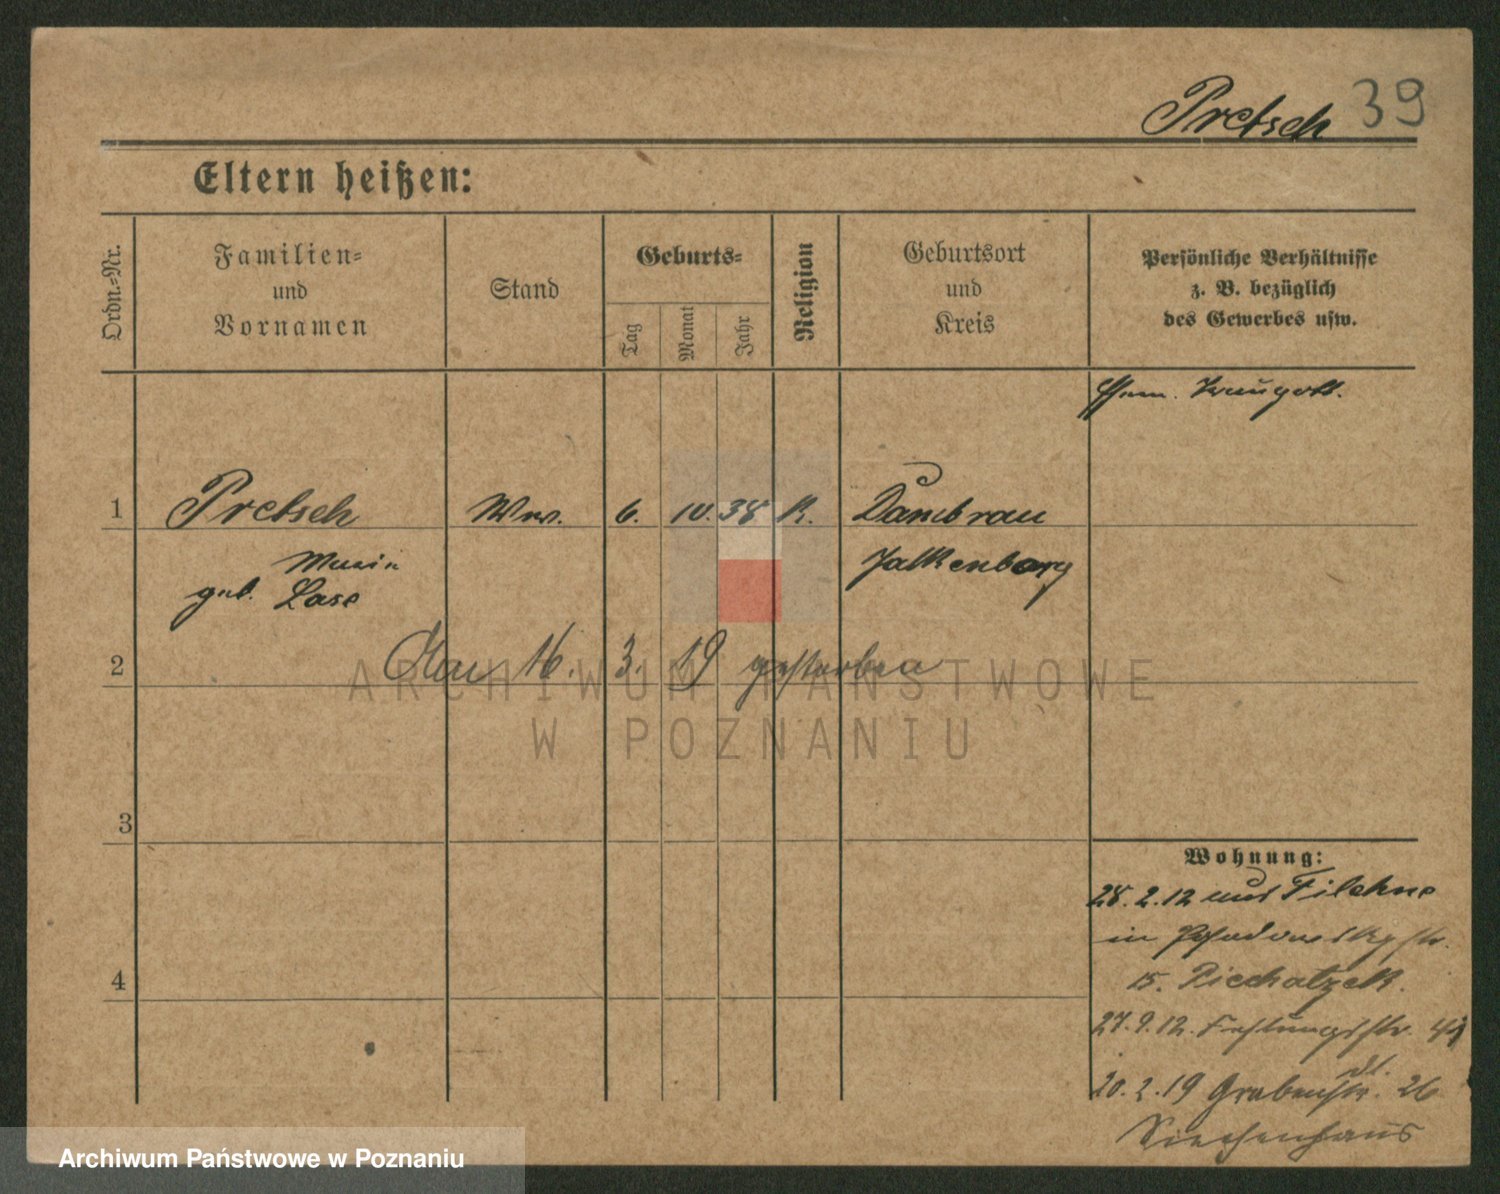 Pretsch 39
Eltern heißen:
Ordn.-Nr.
Familien-
und
Vornamen
Stand
Geburts-
Tag
Monat
Jahr
Religion
Geburtsort
und
Kreis
Persönliche Verhältnisse
z. B. bezüglich
des Gewerbes usw.
1 Pretsch Ww. 6. 10. 38 K. Dambrau
Marie Falkenberg
geb. Lase
2 Am 16. 3. 19 gestorben
3
4
Wohnung:
28. 2. 12 aus Filehne
in
15.
27. 9. 12. Festungsstr.
20. 2. 19 Grabenstr. 26
Siechenhaus
ARCHIWUM PAŃSTWOWE
W POZNANIU
Archiwum Państwowe w Poznaniu